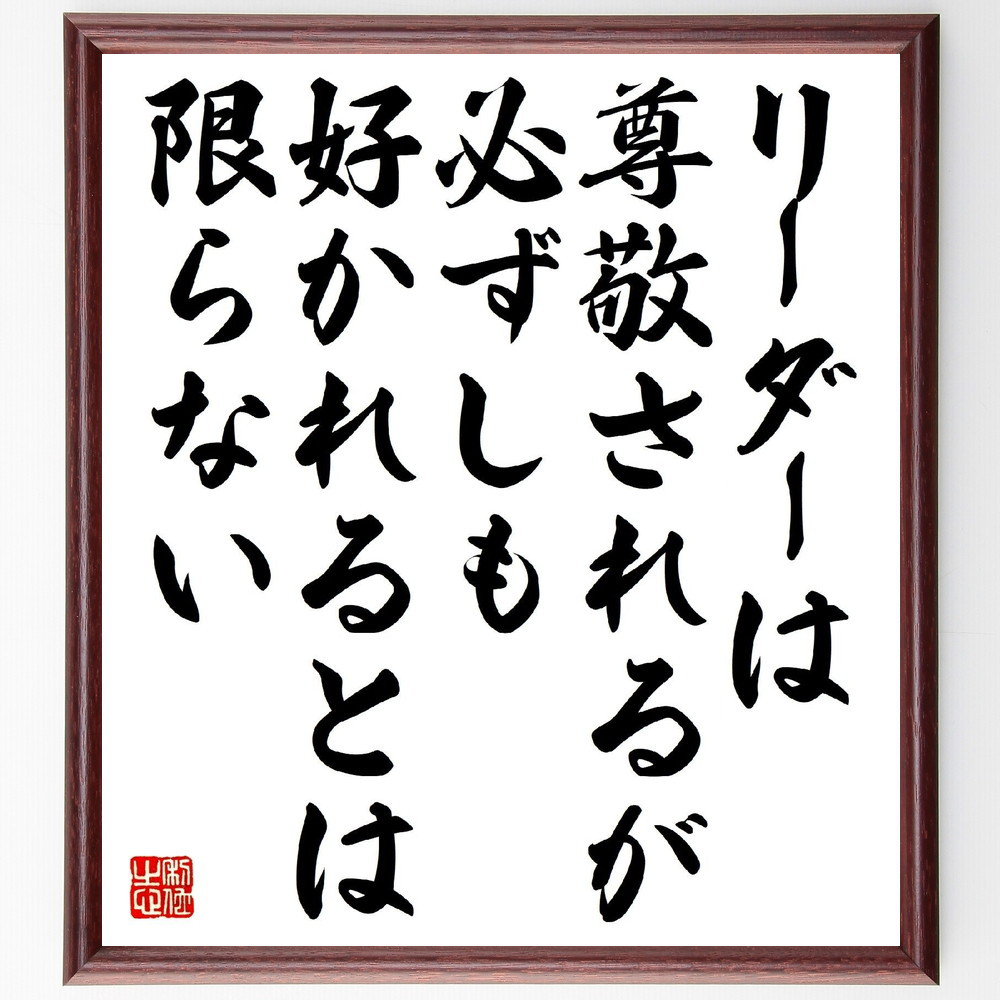 リーダーは
尊敬されるが
必ずしも
好かれるとは
限らない